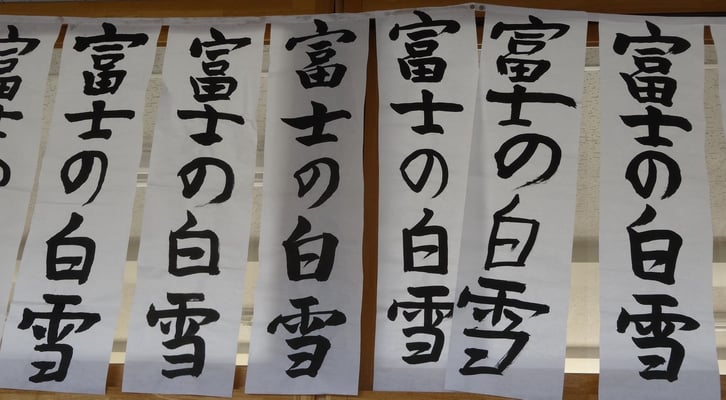 富士の白雪
富士の白雪
富士の白雪
富士の白雪
富士の白雪
富士の白雪
富士の